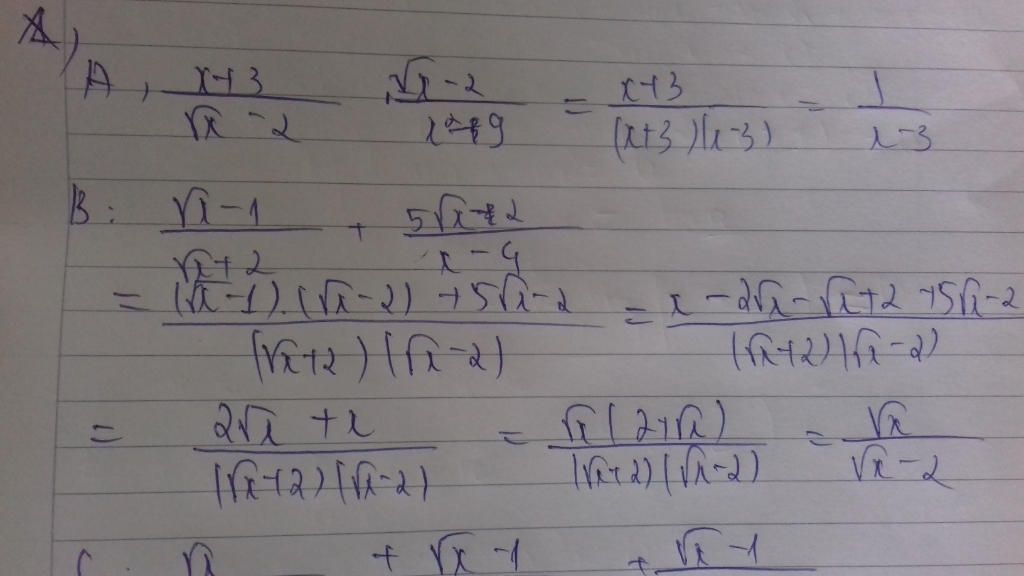 A, (x+3)/(√x -2) . (√x -2)/(x²-9) = (x+3)/((x+3)(x-3)) = 1/(x-3)
B: (√x -1)/(√x+2) + (5√x-2)/(x-4)
= ((√x -1).(√x -2) +5√x-2)/((√x+2)(√x-2)) = (x -2√x -√x+2 +5√x-2)/((√x+2)(√x-2))
= (2√x +x)/((√x+2)(√x-2)) = (√x(2+√x))/((√x+2)(√x-2)) = √x/(√x-2)
C: √x + √x -1 + √x -1